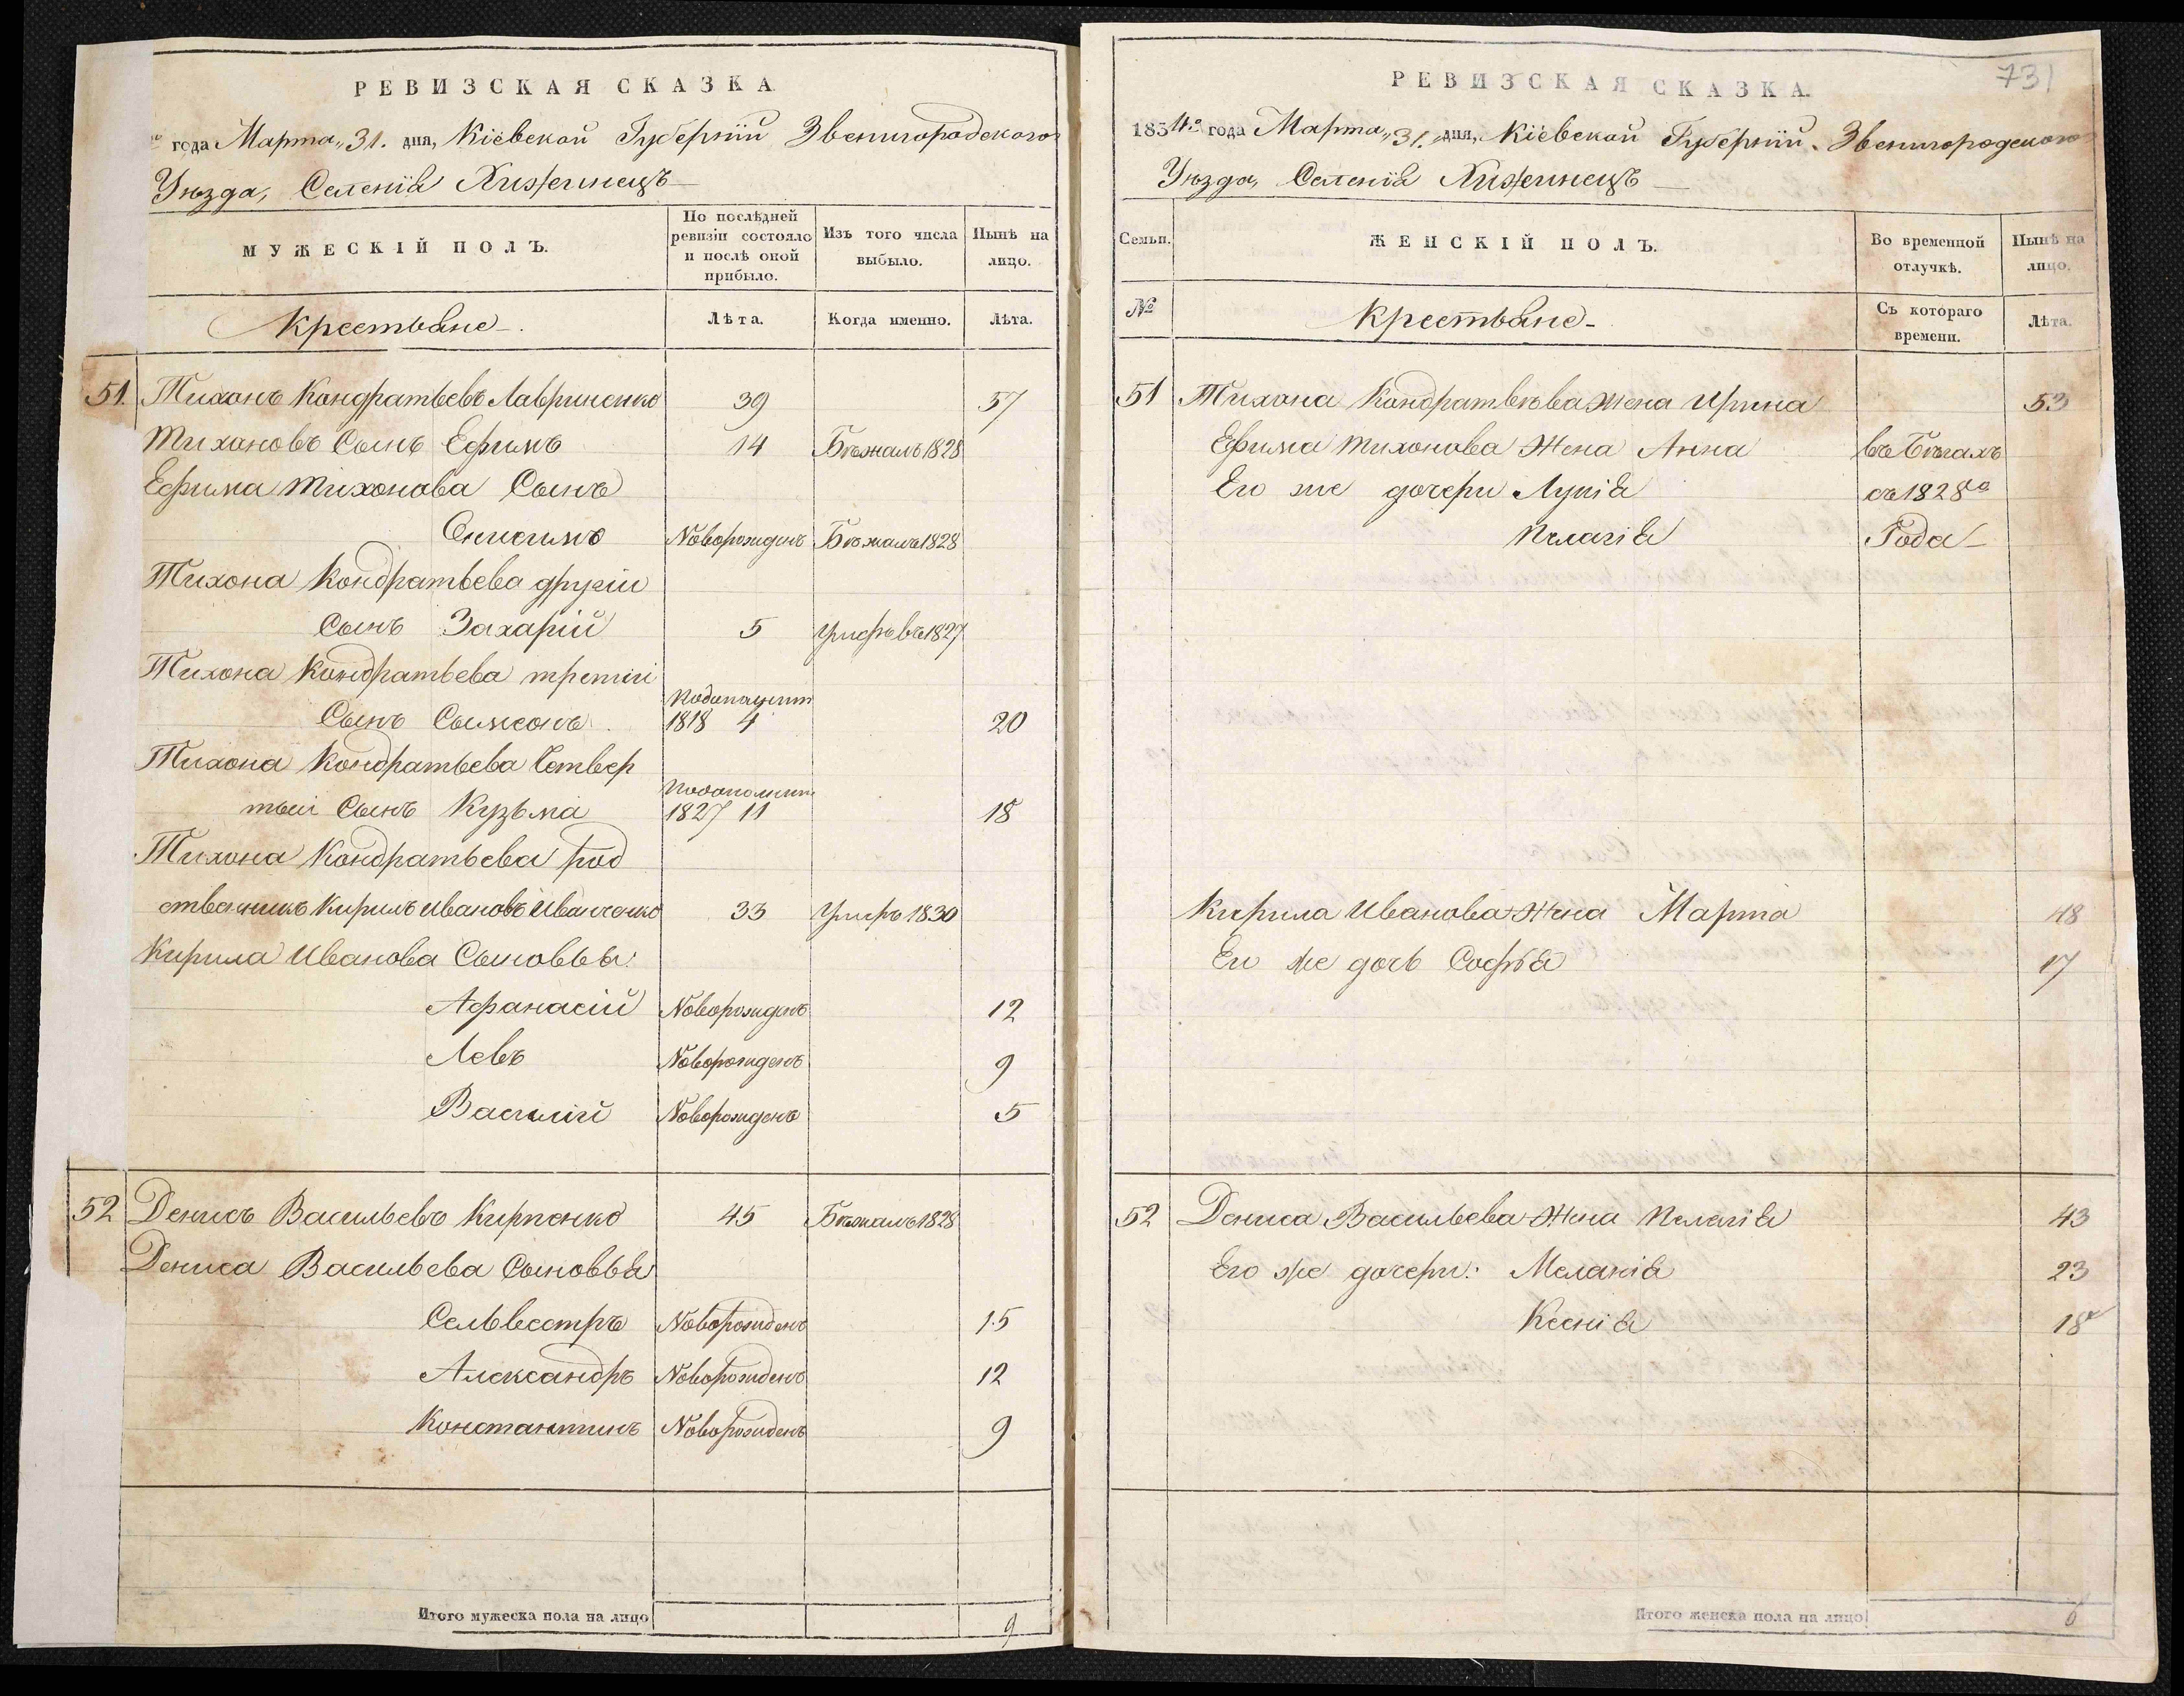 РЕВИЗСКАЯ СКАЗКА
года Марта „31. дня, Кіевской Губерніи Звенигородского
Уѣзда, Селенія Хижинецъ
МУЖЕСКІЙ ПОЛЪ.
По послѣдней ревизіи состояло и послѣ оной прибыло.
Изъ того числа выбыло.
Нынѣ на лицо.
Крестьяне.
Лѣта.
Когда именно.
Лѣта.
51. Тихонъ Кондратьевъ Лавриненко 39 57
Тихоновъ Сынъ Ефимъ 14 Бѣжалъ 1828
Ефима Тихонова Сынъ
Онисимъ Новорожденъ Бѣжалъ 1828
Тихона Кондратьева другіи
Сынъ Захарій 5 Умеръ въ 1827
Тихона Кондратьева третіи
Сынъ Сымеонъ 1818 4 20
Тихона Кондратьева Четвер
тыи Сынъ Кузьма 1827 11 18
Тихона Кондратьева род
ственникъ Кирилъ Ивановъ Иванченко 33 Умеръ 1830
Кирила Иванова Сыновья:
Афанасій Новорожденъ 12
Левъ Новорожденъ 9
Василій Новорожденъ 5
52 Денисъ Васильевъ Кирпенко 45 Бѣжалъ 1828
Дениса Васильева Сыновья
Сельвестръ Новорожденъ 15
Александръ Новорожденъ 12
Константинъ Новорожденъ 9
Итого мужеска пола на лицо 9
731
РЕВИЗСКАЯ СКАЗКА.
1834го года Марта „31. дня, Кіевской Губерніи. Звенигородского
Уѣзда, Селенія Хижинецъ
Семьи.
ЖЕНСКІЙ ПОЛЪ.
Во временной отлучкѣ.
Нынѣ на лицо.
№
Крестьяне
Съ котораго времени.
Лѣта.
51 Тихона Кондратьева Жена Ирина 53
Ефима Тихонова Жена Анна въ Бѣгахъ
Его же дочери Лукія съ 1828го
Пелагія Года
Кирила Иванова Жена Марта 48
Его же дочь Софья 17
52 Дениса Васильева Жена Пелагія 43
Его же дочери: Меланія 23
Ксенія 18
Итого женска пола на лицо 6